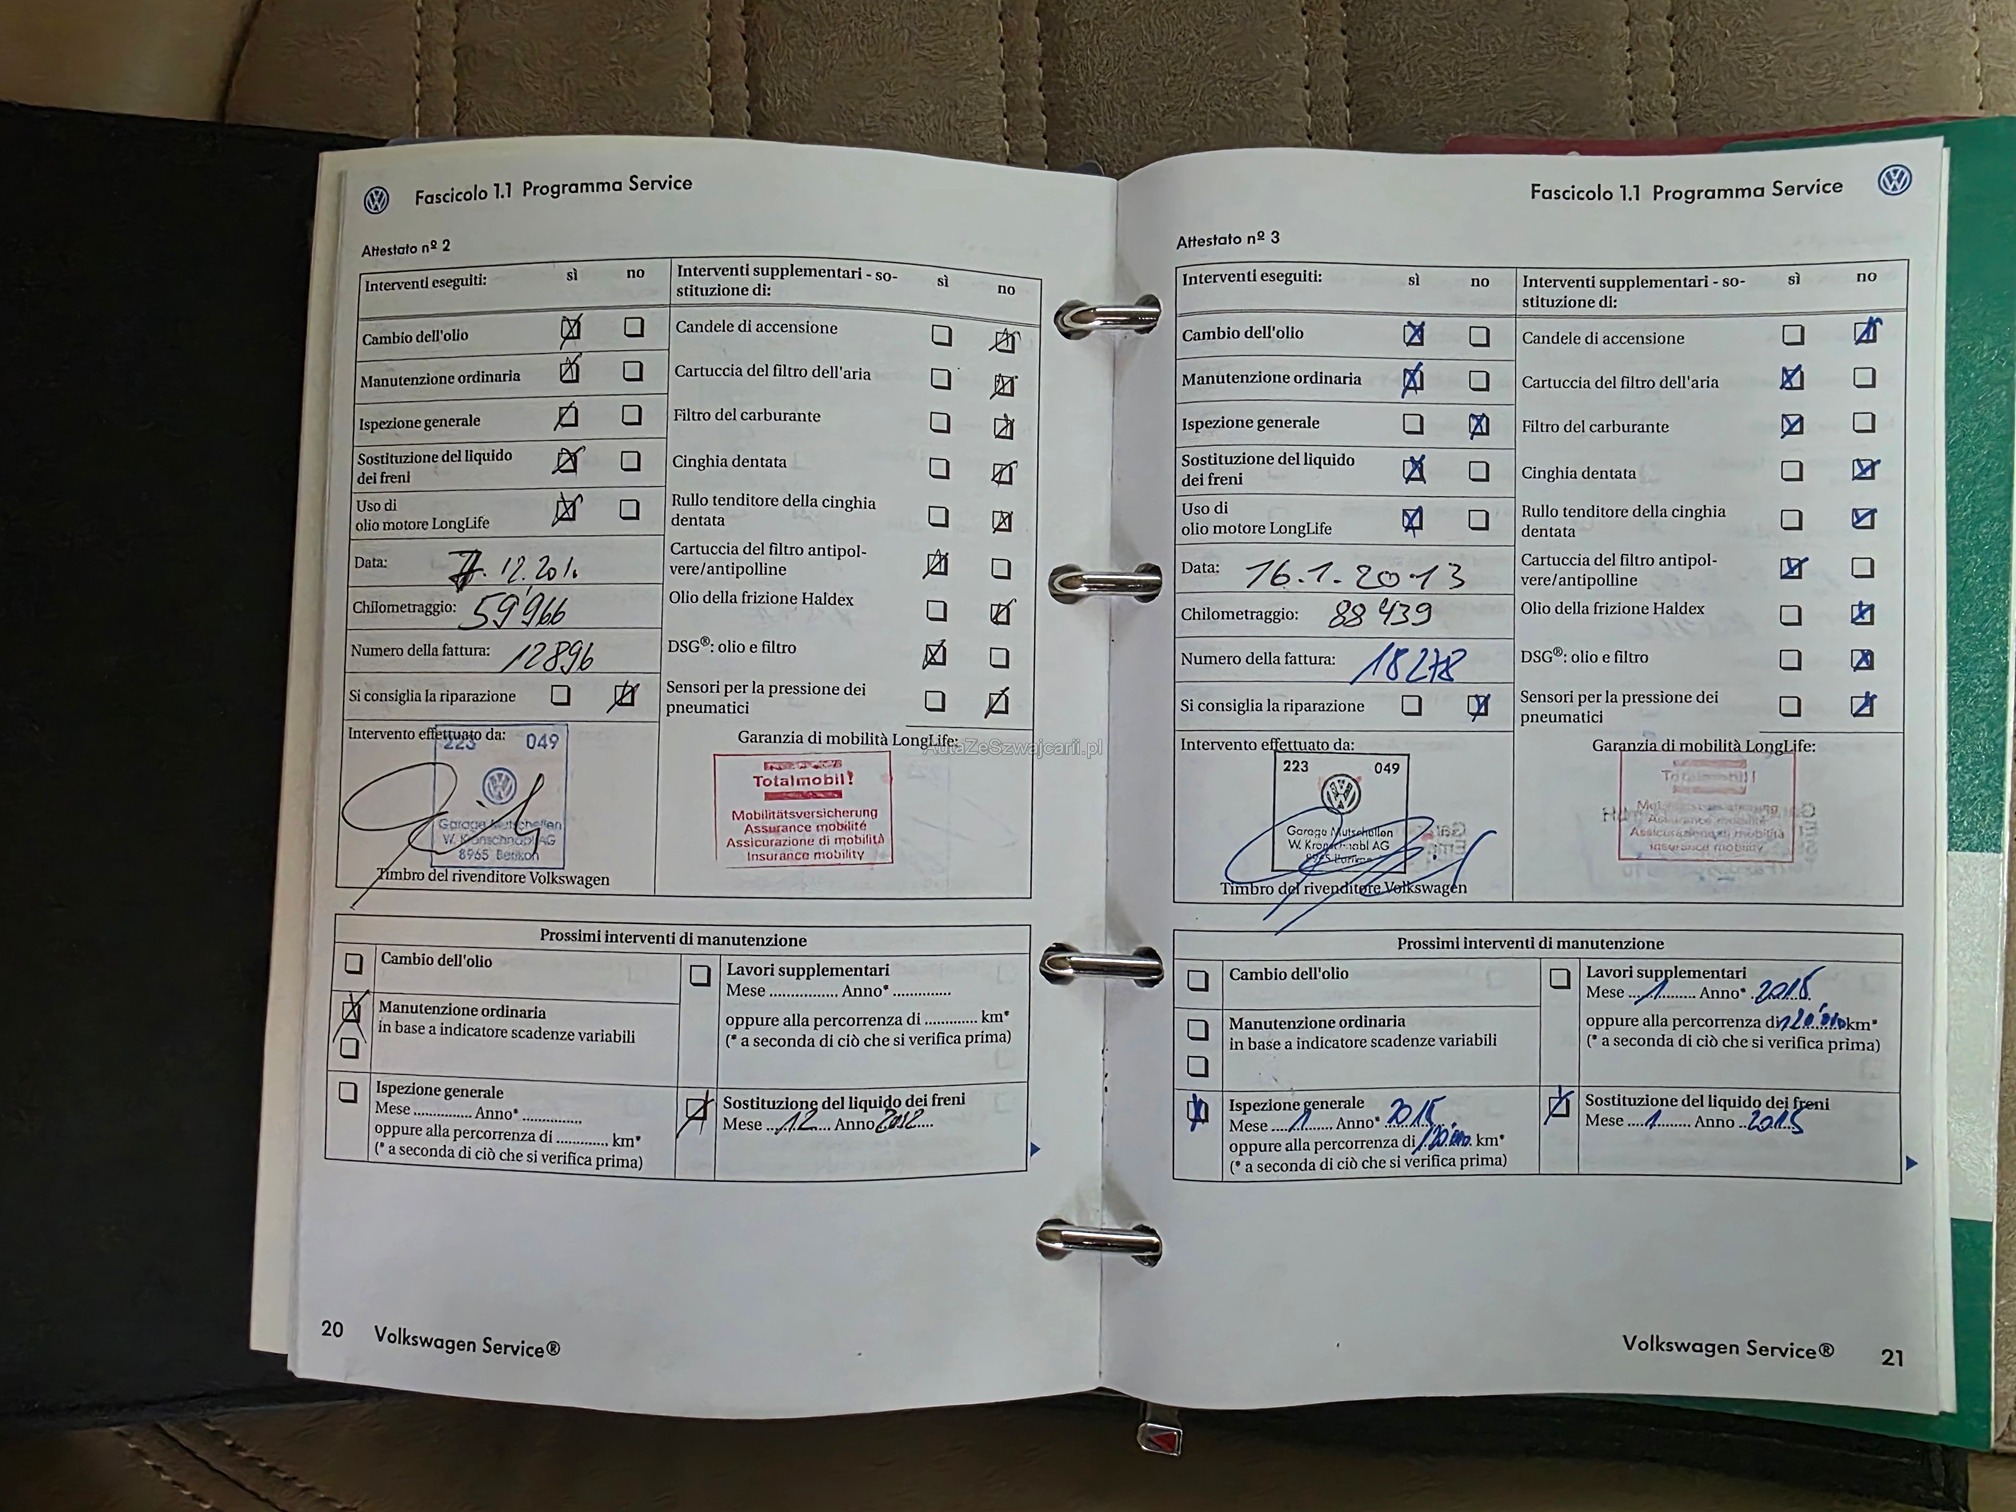 Fascicolo 1.1 Programma Service
Attestato nº 2
Interventi eseguiti: sì no
Cambio dell'olio
Manutenzione ordinaria
Ispezione generale
Sostituzione del liquido
dei freni
Uso di
olio motore LongLife
Data: 7.12.201
Chilometraggio: 59'966
Numero della fattura: 12896
Si consiglia la riparazione
Intervento effettuato da:
223 049
Garage Mutschellen
W. Kronschnabl AG
8965 Berikon
Timbro del rivenditore Volkswagen
Interventi supplementari - so-
stituzione di: sì no
Candele di accensione
Cartuccia del filtro dell'aria
Filtro del carburante
Cinghia dentata
Rullo tenditore della cinghia
dentata
Cartuccia del filtro antipol-
vere/antipolline
Olio della frizione Haldex
DSG®: olio e filtro
Sensori per la pressione dei
pneumatici
Garanzia di mobilità LongLife:
AutaZeSzwajcarii.pl
Totalmobil!
Mobilitätsversicherung
Assurance mobilité
Assicurazione di mobilità
Insurance mobility
Prossimi interventi di manutenzione
Cambio dell'olio
Manutenzione ordinaria
in base a indicatore scadenze variabili
Ispezione generale
Mese ............... Anno* ...............
oppure alla percorrenza di ............. km*
(* a seconda di ciò che si verifica prima)
Lavori supplementari
Mese ................. Anno* ..............
oppure alla percorrenza di ............. km*
(* a seconda di ciò che si verifica prima)
Sostituzione del liquido dei freni
Mese ..12.... Anno 2012....
20 Volkswagen Service®
Fascicolo 1.1 Programma Service
Attestato nº 3
Interventi eseguiti: sì no
Cambio dell'olio
Manutenzione ordinaria
Ispezione generale
Sostituzione del liquido
dei freni
Uso di
olio motore LongLife
Data: 16.1.2013
Chilometraggio: 88439
Numero della fattura: 18278
Si consiglia la riparazione
Intervento effettuato da:
223 049
Garage Mutschellen
W. Kronschnabl AG
8965 Berikon
Timbro del rivenditore Volkswagen
Interventi supplementari - so-
stituzione di: sì no
Candele di accensione
Cartuccia del filtro dell'aria
Filtro del carburante
Cinghia dentata
Rullo tenditore della cinghia
dentata
Cartuccia del filtro antipol-
vere/antipolline
Olio della frizione Haldex
DSG®: olio e filtro
Sensori per la pressione dei
pneumatici
Garanzia di mobilità LongLife:
Totalmobil!
Mobilitätsversicherung
Assurance mobilité
Assicurazione di mobilità
Insurance mobility
Prossimi interventi di manutenzione
Cambio dell'olio
Manutenzione ordinaria
in base a indicatore scadenze variabili
Ispezione generale
Mese ....1....... Anno* 2015
oppure alla percorrenza di 120'000 km*
(* a seconda di ciò che si verifica prima)
Lavori supplementari
Mese ....1........ Anno* 2015
oppure alla percorrenza di 120'000 km*
(* a seconda di ciò che si verifica prima)
Sostituzione del liquido dei freni
Mese ....1........ Anno ..2015
Volkswagen Service® 21